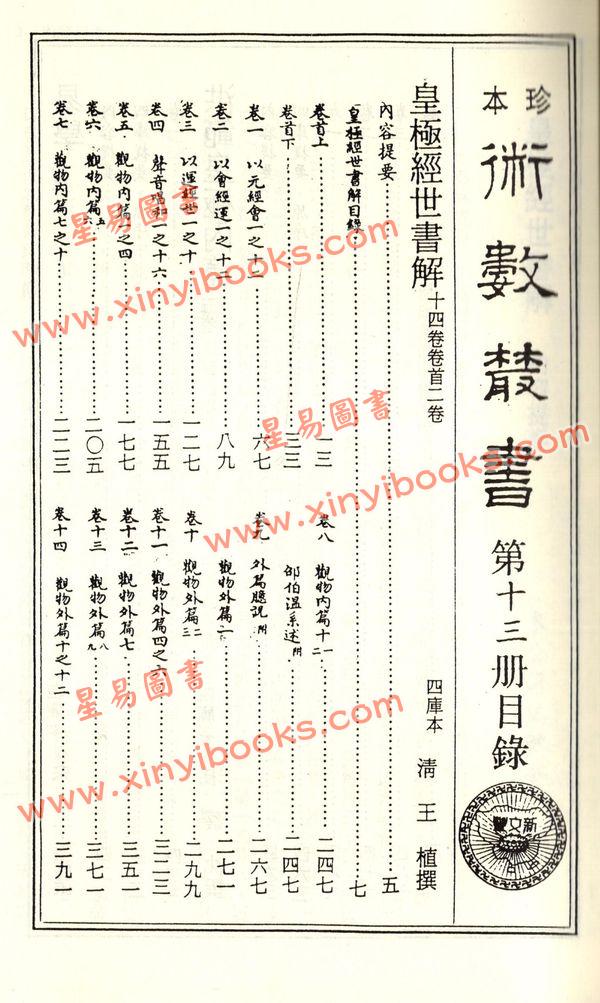 珍本 術數叢書 第十三册目錄
皇極經世書解 十四卷卷首二卷 四庫本 清 王 植撰
內容提要 五
皇極經世書解目錄 七
卷首上 一三
卷首下 二三
卷一 以元經會一之十二 六七
卷二 以會經運一之十二 八九
卷三 以運經世一之十 一二七
卷四 聲音唱和一之十六 一五五
卷五 觀物內篇一之四 一七七
卷六 觀物內篇五六 二〇五
卷七 觀物內篇七之十 二二三
卷八 觀物內篇十一十二 二四七
邵伯溫系述附 二四七
卷九 外篇臆說附 二六七
觀物外篇一 二七一
卷十 觀物外篇二三 二九九
卷十一 觀物外篇四之六 三二三
卷十二 觀物外篇七 三五一
卷十三 觀物外篇八九 三七一
卷十四 觀物外篇十之十二 三九一
新文豐
星易圖書
www.xinyibooks.com
星易圖書
www.xinyibooks.com
星易圖書
www.xinyibooks.com